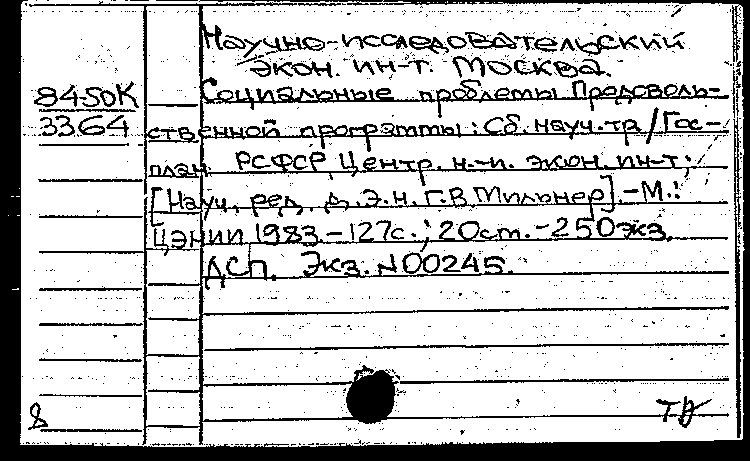 Научно-исследовательский
экон. ин-т. Москва.
84-50К
3364
Социальные проблемы Продоволь-
ственной программы: Сб. науч. тр./Гос-
план РСФСР, Центр. н.-и. экон. ин-т;
[Науч. ред. д.э.н. Г.В. Мильнер].-М.:
ЦЭНИИ, 1983.-127с.; 20см.-250экз.
ДСП. Экз. N00245.
8